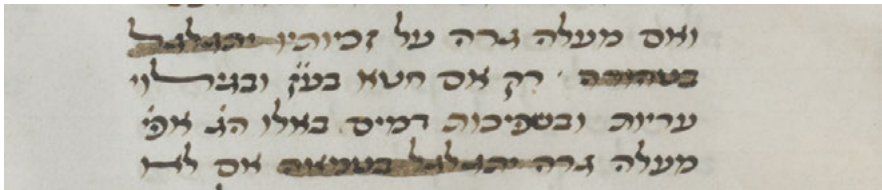 ואם מעלה גרה על זכיותיו יתגלגל
בטהורה רק אם חטא בע״ז ובגילוי
עריות ובשפיכות דמים באלו הג׳ אפי׳
מעלה גרה יתגלגל בטמאה אם לאו